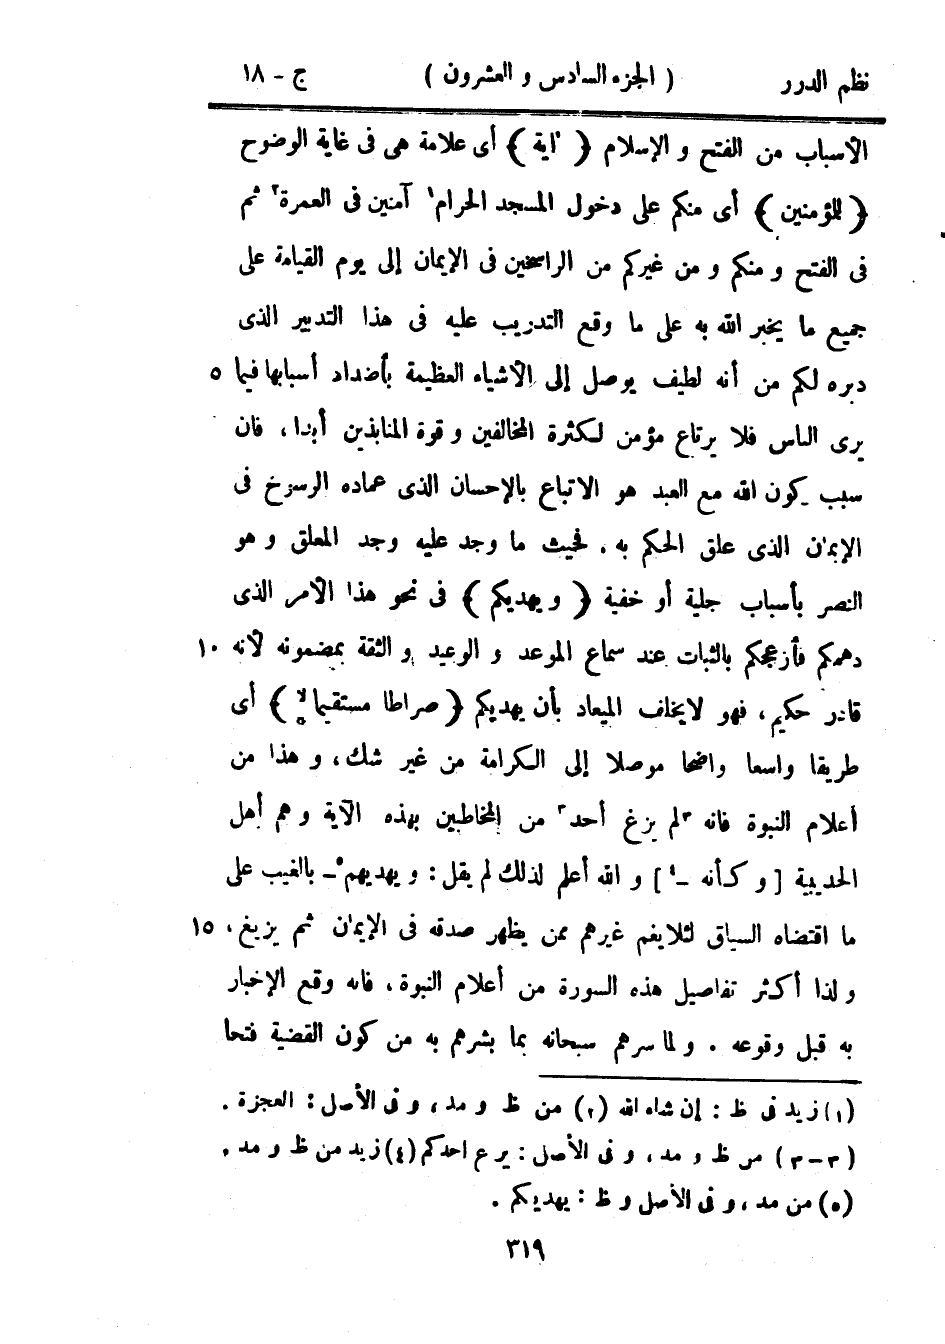 نظم الدرر ( الجزء السادس و العشرون ) ج - ١٨
الأسباب من الفتح و الإسلام ﴿ اٰية ﴾ أى علامة هى فى غاية الوضوح
﴿ للمؤمنين ﴾ أى منكم على دخول المسجد الحرام١ آمنين فى العمرة٢ ثم
فى الفتح و منكم و من غيركم من الراسخين فى الإيمان إلى يوم القيامة على
جميع ما يخبر الله به على ما وقع التدريب عليه فى هذا التدبير الذى
دبره لكم من أنه لطيف يوصل إلى الأشياء العظيمة بأضداد أسبابها فيما ٥
يرى الناس فلا يرتاع مؤمن لكثرة المخالفين و قوة المنابذين أبدا ، فان
سبب كون الله مع العبد هو الاتباع بالإحسان الذى عماده الرسوخ فى
الإيمان الذى علق الحكم به ، فحيث ما وجد عليه وجد المعلق و هو
النصر بأسباب جلية أو خفية ﴿ و يهديكم ﴾ فى نحو هذا الأمر الذى
دهمكم فأزعجكم بالثبات عند سماع الموعد و الوعيد و الثقة بمضمونه لأنه ١٠
قادر حكيم ، فهو لايخلف الميعاد بأن يهديكم ﴿ صراطا مستقيما ﴾ أى
طريقا واسعا واضحا موصلا إلى الكرامة من غير شك ، و هذا من
أعلام النبوة فانه ٣لم يزغ أحد٣ من المخاطبين بهذه الآية و هم أهل
الحديبية [ و كأنه -٤ ] و الله أعلم لذلك لم يقل : و يهديهم٥ـ بالغيب على
ما اقتضاه السياق لئلايغم غيرهم ممن يظهر صدقه فى الإيمان ثم يزيغ ، ١٥
و لذا أكثر تفاصيل هذه السورة من أعلام النبوة ، فانه وقع الإخبار
به قبل وقوعه . و لما سرهم سبحانه بما بشرهم به من كون القضية فتحا
(١) زيد فى ظ : إن شاء الله (٢) من ظ و مد ، و فى الأصل : العجزة .
(٣-٣) من ظ و مد ، و فى الأصل : يرع احدكم (٤) زيد من ظ و مد .
(٥) من مد ، و فى الأصل و ظ : يهديكم .
٣١٩